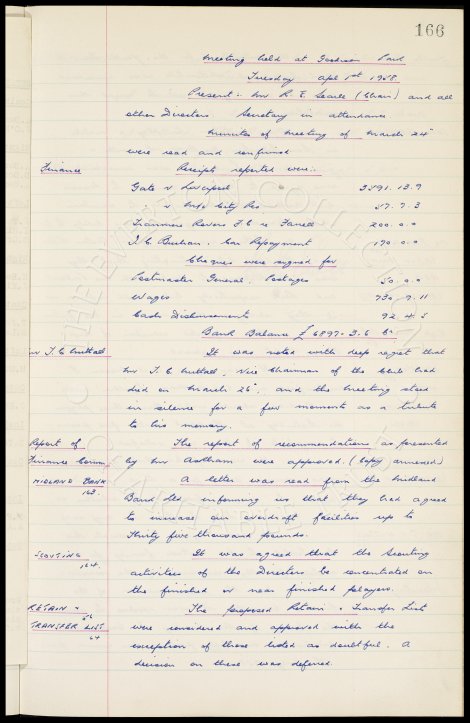 166
Meeting held at Goodison Park
Tuesday Apl 1st 1958.
Present:- Mr R. E. Searle (Chair) and all
other Directors Secretary in attendance
Minutes of Meeting of March 24th
were read and confirmed
Finance
Receipts reported were:-
Gate v Liverpool 2591.13.9
" v M/c City Res 57.7.3
Tranmere Rovers F.C. re Farrell 200.0.0
J.C. Buchan. Car Repayment 170.0.0
Cheques were signed for
Postmaster General. Postages 50.0.0
Wages 730.9.11
Cash Disbursements 92.4.5
Bank Balance £6897.3.6 Cr
Mr T. C. Nuttall
It was noted with deep regret that
Mr T. C. Nuttall, Vice Chairman of the Club had
died on March 26th, and the Meeting stood
in silence for a few moments as a tribute
to his memory.
Report of
Finance Comm.
The report of recommendations as presented
by Mr Ashham were approved. (Copy annexed)
MIDLAND BANK
163.
A letter was read from the Midland
Bank Ltd informing us that they had agreed
to increase our overdraft facilities up to
thirty five thousand pounds.
SCOUTING
164.
It was agreed that the Scouting
activities of the Directors be concentrated on
the finished or near finished players.
RETAIN &
TRANSFER LIST
64
The proposed Retain & Transfer List
were considered and approved with the
exception of those listed as doubtful. A
decision on these was deferred.